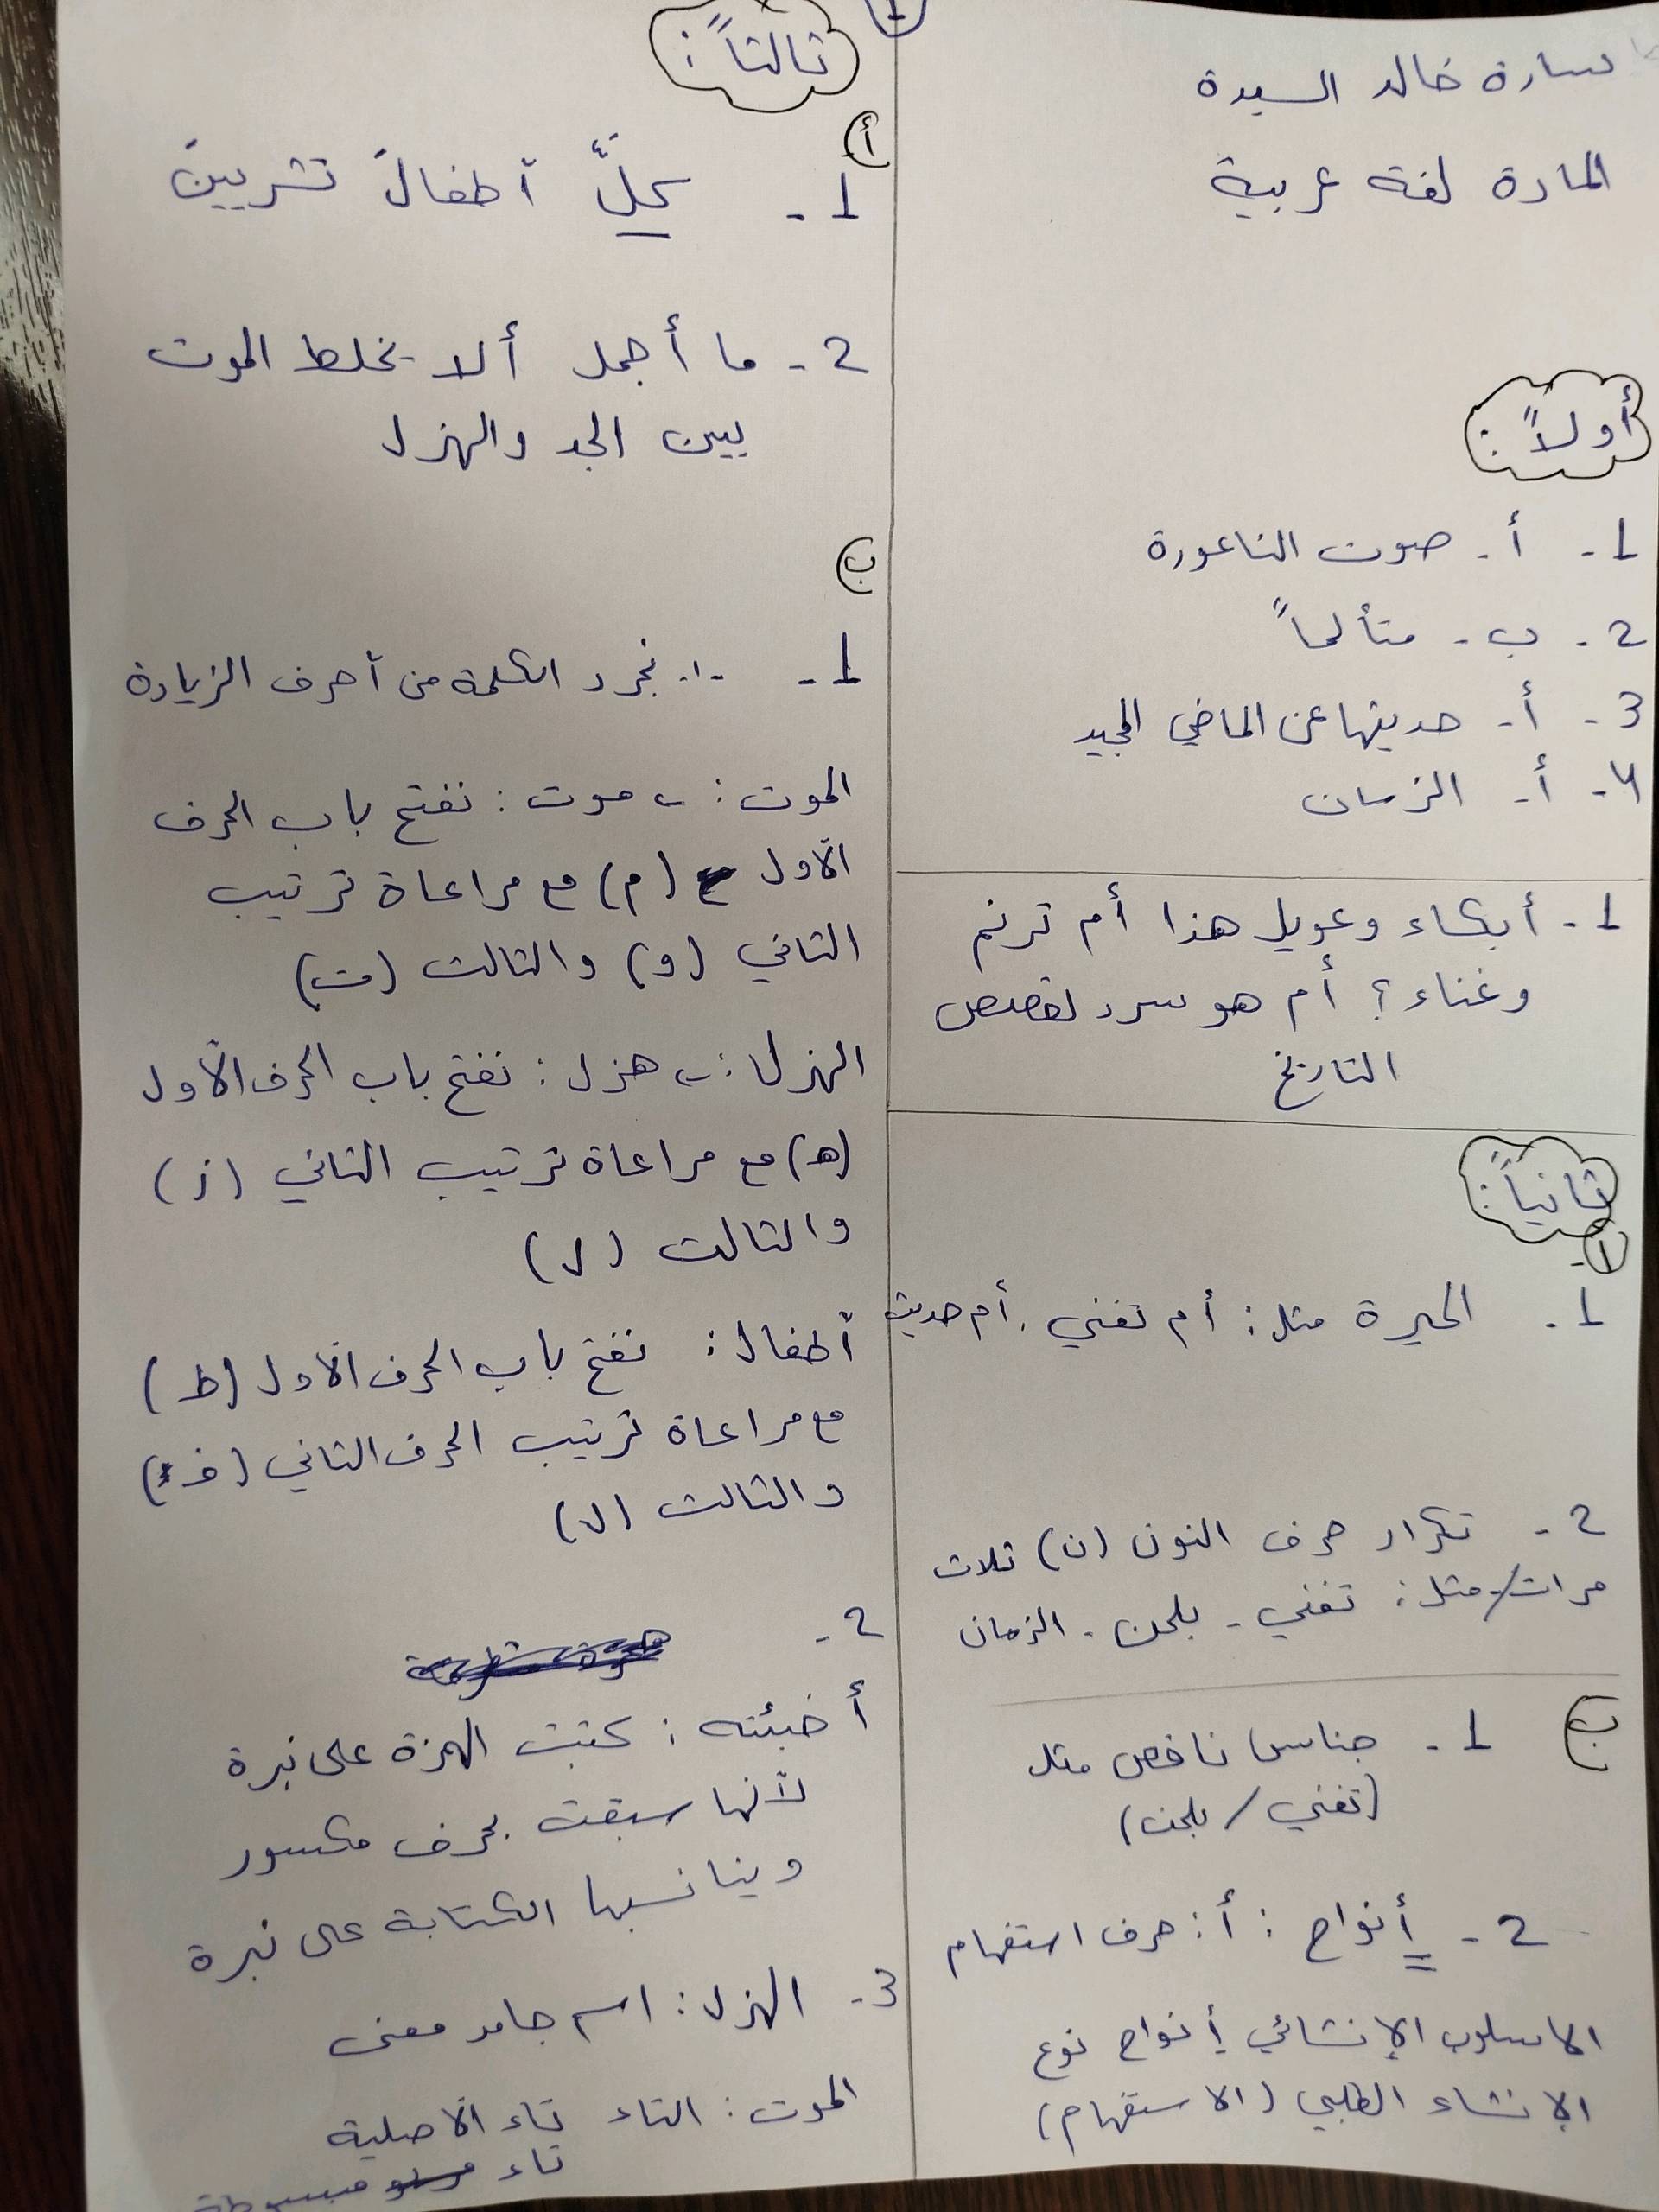 سارة خالد السيدة
المادة لغة عربية
أولاً:
1- أ- صوت الناعورة
2- ب- متألماً
3- أ- حديثها عن الماضي المجيد
4- أ- الزمان
1- أبكاء وعويل هذا أم ترنم
وغناء؟ أم هو سرد لقصص
التاريخ
ثانياً:
أ
1- الحيرة مثل: أم تغني، أم حديث
2- تكرار حرف النون (ن) ثلاث
مرات/ مثل: تغني - بلحن - الزمان
ب
1- جناس ناقص مثل
(تغني / بلحن)
2- أنواح: أ: حرف استفهام
الاسلوب الإنشائي أنواح نوع
الإنشاء الطلبي (الاستفهام)
1
ثالثاً:
أ
1- كلَّ أطفالَ تشرينَ
2- ما أجمل ألا يخلط الموت
بين الجد والهزل
ب
1- نجرد الكلمة من أحرف الزيادة
الموت: موت: نفتح باب الحرف
الأول (م) مع مراعاة ترتيب
الثاني (و) والثالث (ت)
الهزل: هزل: نفتح باب الحرف الأول
(هـ) مع مراعاة ترتيب الثاني (ز)
والثالث (ل)
أطفال: نفتح باب الحرف الأول (ط)
مع مراعاة ترتيب الحرف الثاني (ف)
والثالث (ل)
2-
أخبئته: كتبت الهمزة على نبرة
لأنها سبقت بحرف مكسور
ويناسبها الكتابة على نبرة
3- الهزل: اسم جامد معنى
الموت: التاء تاء الأصلية
تاء مبسوطة